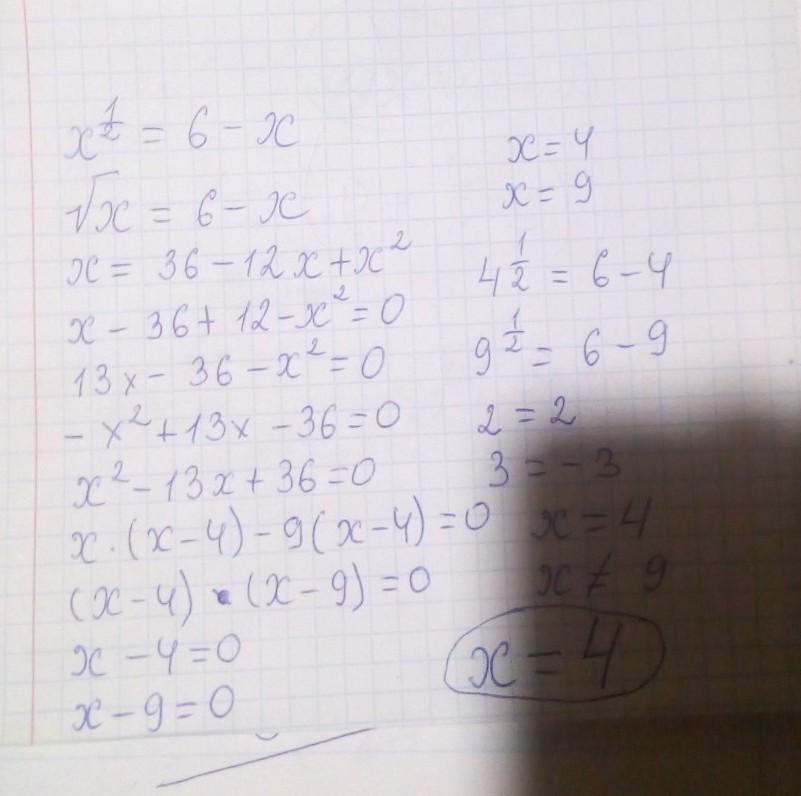 x^{1/2} = 6 - x
√x = 6 - x
x = 36 - 12x + x²
x - 36 + 12 - x² = 0
13x - 36 - x² = 0
- x² + 13x - 36 = 0
x² - 13x + 36 = 0
x · (x - 4) - 9(x - 4) = 0
(x - 4) · (x - 9) = 0
x - 4 = 0
x - 9 = 0
x = 4
x = 9
4^{1/2} = 6 - 4
9^{1/2} = 6 - 9
2 = 2
3 = -3
x = 4
x ≠ 9
x = 4